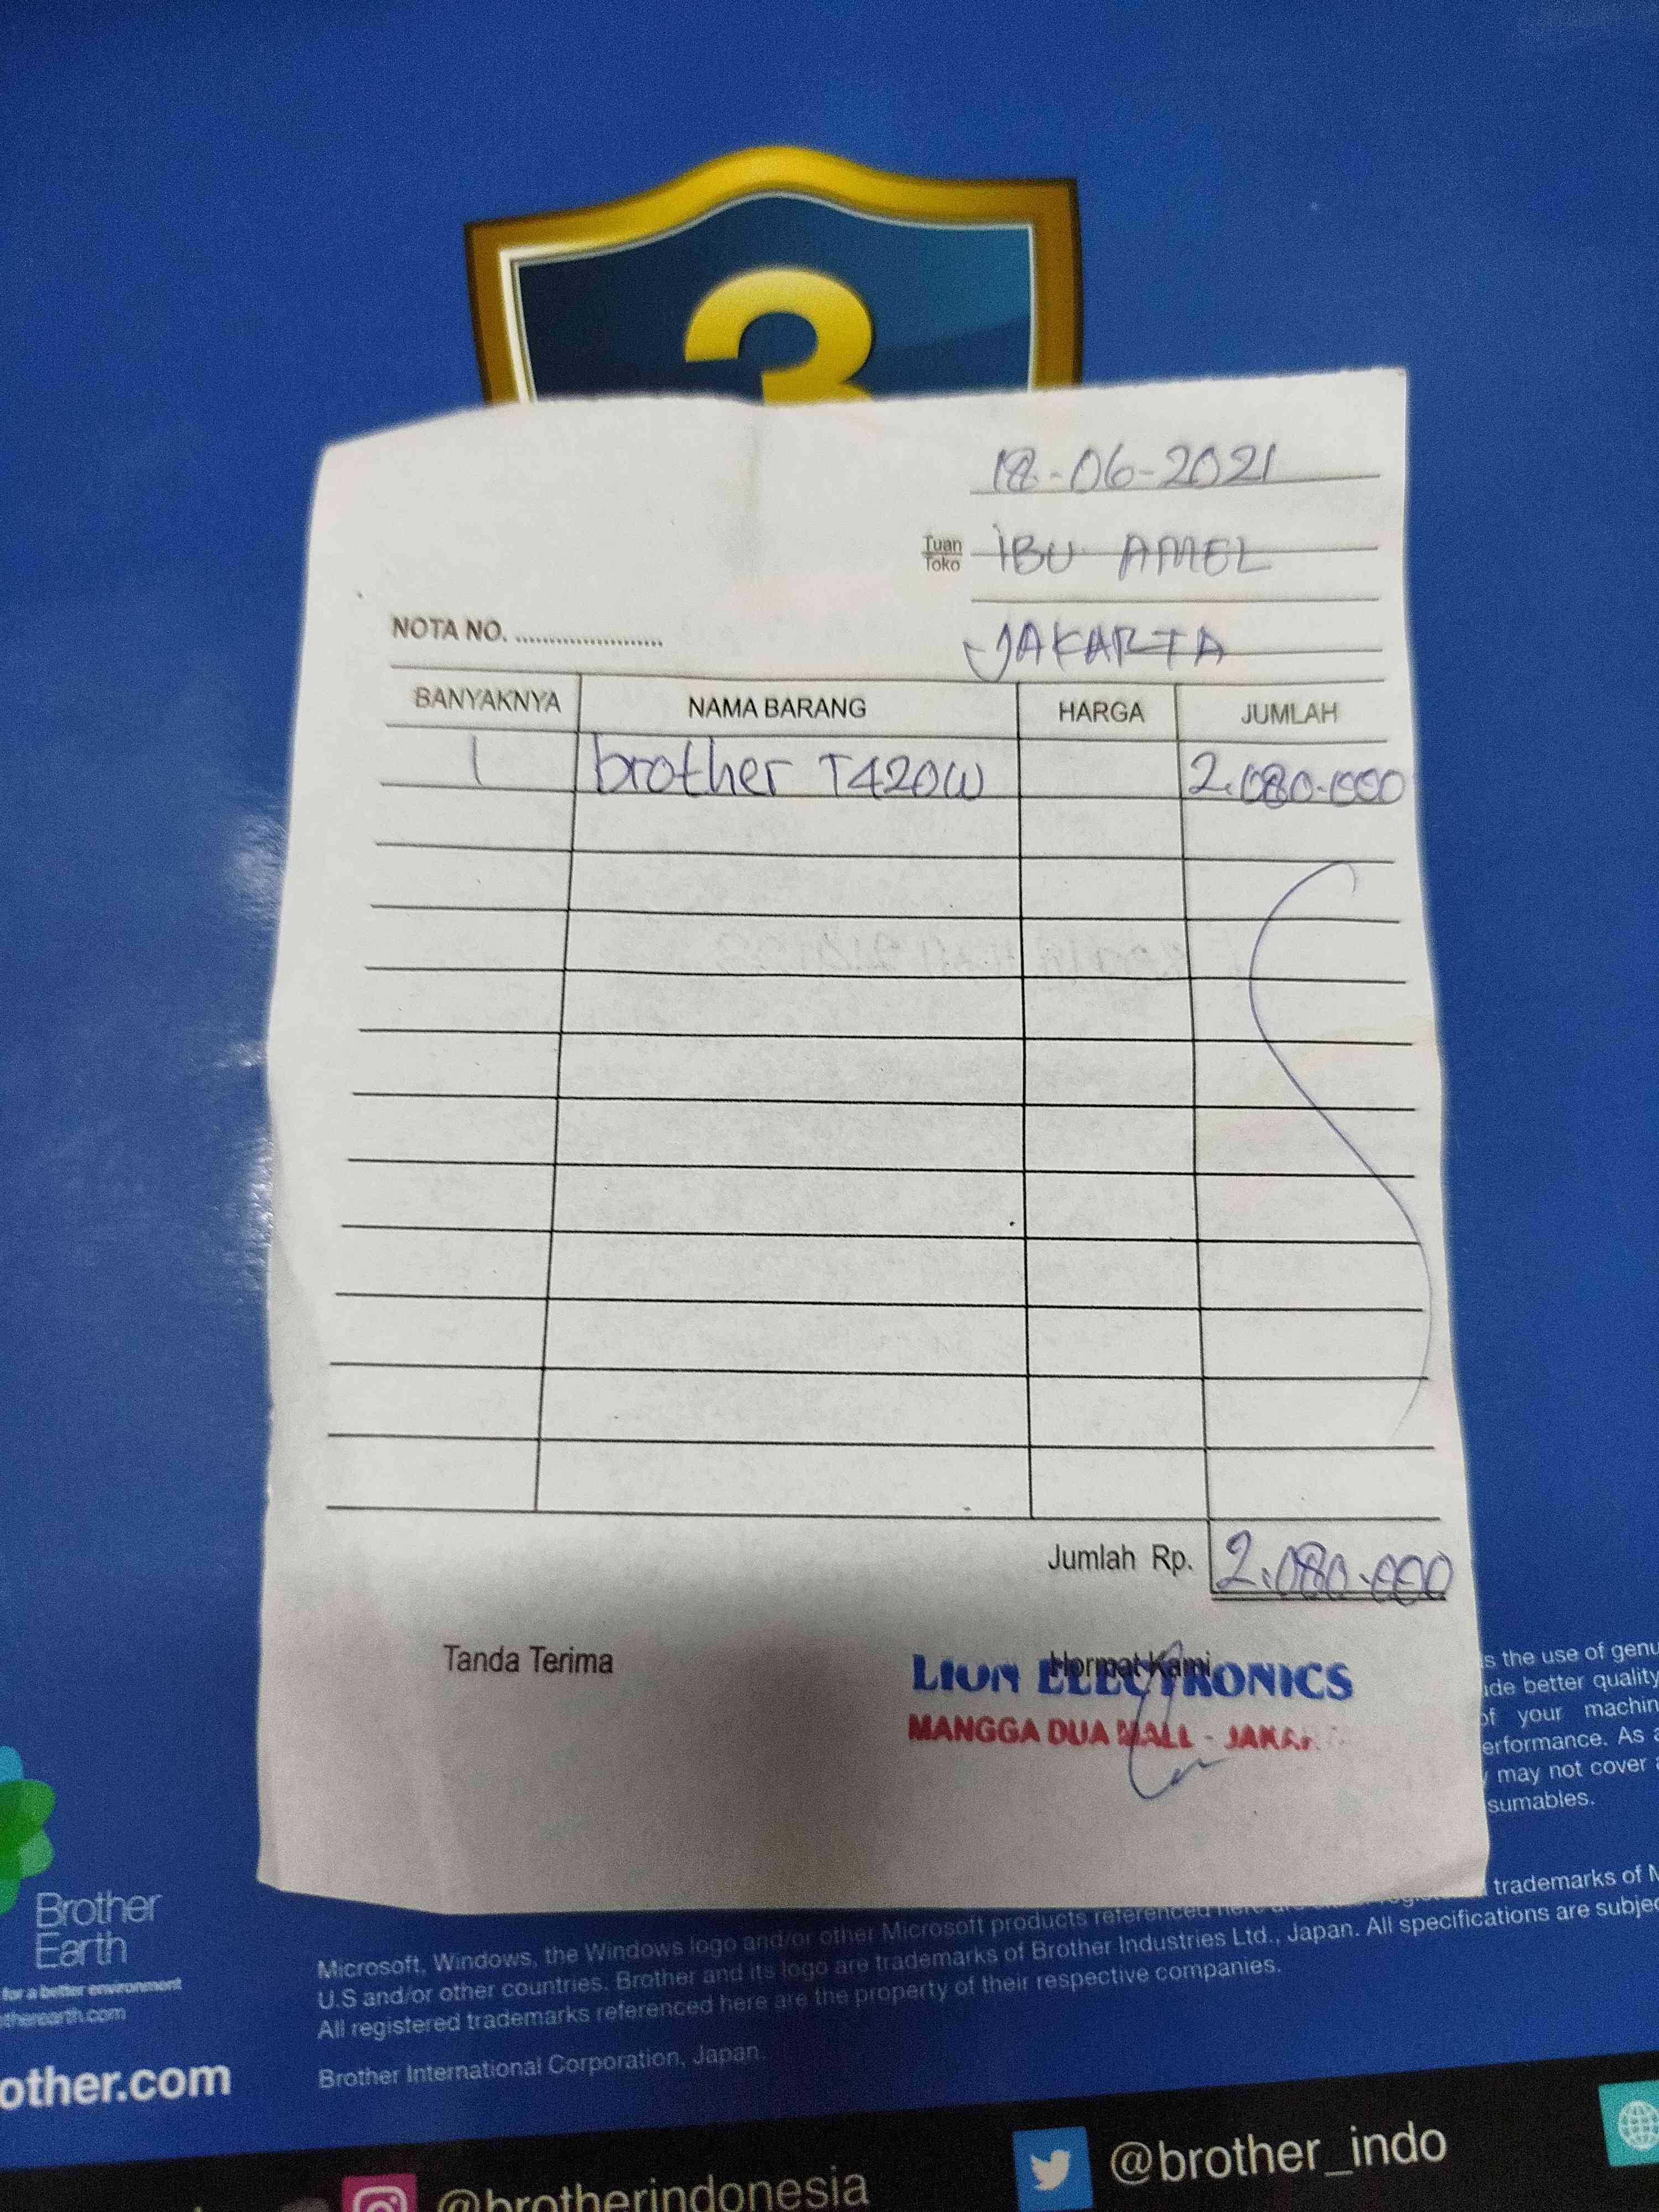 3
18-06-2021
Tuan
Toko
IBU AMEL
JAKARTA
NOTA NO. ......................
BANYAKNYA NAMA BARANG HARGA JUMLAH
1 brother T420W 2.080.000
Jumlah Rp. 2.080.000
Tanda Terima
Hormat Kami
LION ELECTRONICS
MANGGA DUA MALL - JAKAR
s the use of genu
ide better quality
of your machin
erformance. As a
may not cover a
sumables.
trademarks of M
Microsoft, Windows, the Windows logo and/or other Microsoft products referenced here are
U.S and/or other countries. Brother and its logo are trademarks of Brother Industries Ltd., Japan. All specifications are subjec
All registered trademarks referenced here are the property of their respective companies.
Brother International Corporation, Japan.
Brother
Earth
for a better environment
therearth.com
other.com
@brotherindonesia
@brother_indo